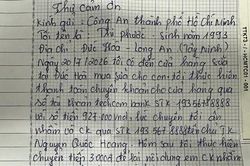 Thư Cảm Ơn
Kính gửi: Công An thành phố Hồ Chí Minh
Tôi tên là: Thi Phước sinh năm 1993
Địa chỉ: Đức Hòa - Long An (Tây Ninh)
Ngày 20/7/2026 tôi có đến cửa hàng sữa
tại Đức Hòa mua sữa cho con tôi thực hiện
thanh toán chuyển khoản cho cửa hàng qua
Số tài khoản techcombank STK 193567 8888
với số tiền 927.000 lúc chuyển tôi ấn
nhầm có CK qua STK 193 561 8888 tên chủ TK
Nguyễn Quốc Hoàng. Hôm sau tôi thực hiện
chuyển tiếp 3.000đ để lại nội dung xin CK nhầm